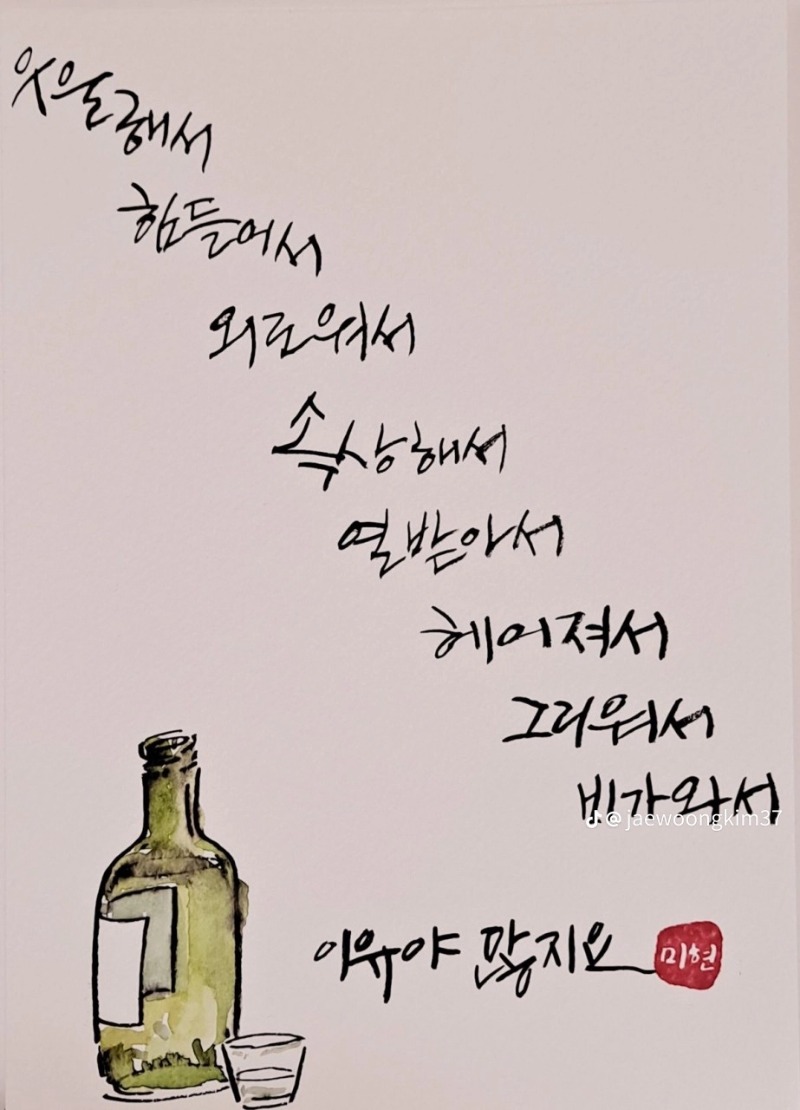 우울해서
힘들어서
외로워서
속상해서
열받아서
헤어져서
그리워서
비가와서
@jaewoongkim37
이유야 많지요
미현